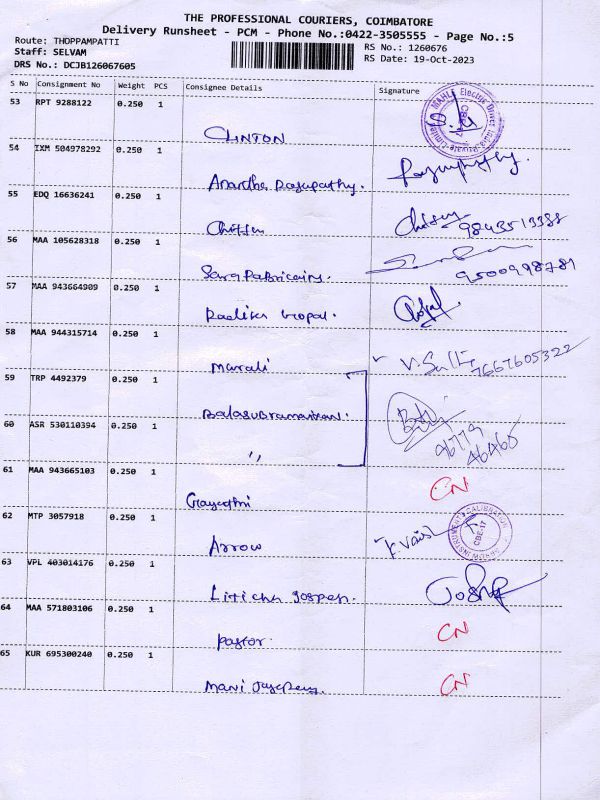 THE PROFESSIONAL COURIERS, COIMBATORE
Delivery Runsheet - PCM - Phone No.:0422-3505555 - Page No.:5
Route: THOPPAMPATTI
RS No.: 1260676
Staff: SELVAM
RS Date: 19-Oct-2023
DRS No.: DCJB126067605
S No Consignment No Weight PCS Consignee Details Signature
53 RPT 9288122 0.250 1
CLINTON
54 IXM 504978292 0.250 1
Anantha Rajupathy.
55 EDQ 16636241 0.250 1
9843513388
56 MAA 105628318 0.250 1
9500998789
57 MAA 943664909 0.250 1
Gopal.
58 MAA 944315714 0.250 1
Murali
7667605322
59 TRP 4492379 0.250 1
Balasubramanian.
60 ASR 530110394 0.250 1
,,
96779
46465
61 MAA 943665103 0.250 1
Gayathri CN
62 MTP 3057918 0.250 1
Arrow
CBE-17
63 VPL 403014176 0.250 1
64 MAA 571803106 0.250 1
pastor. CN
65 KUR 695300240 0.250 1
Mani CN